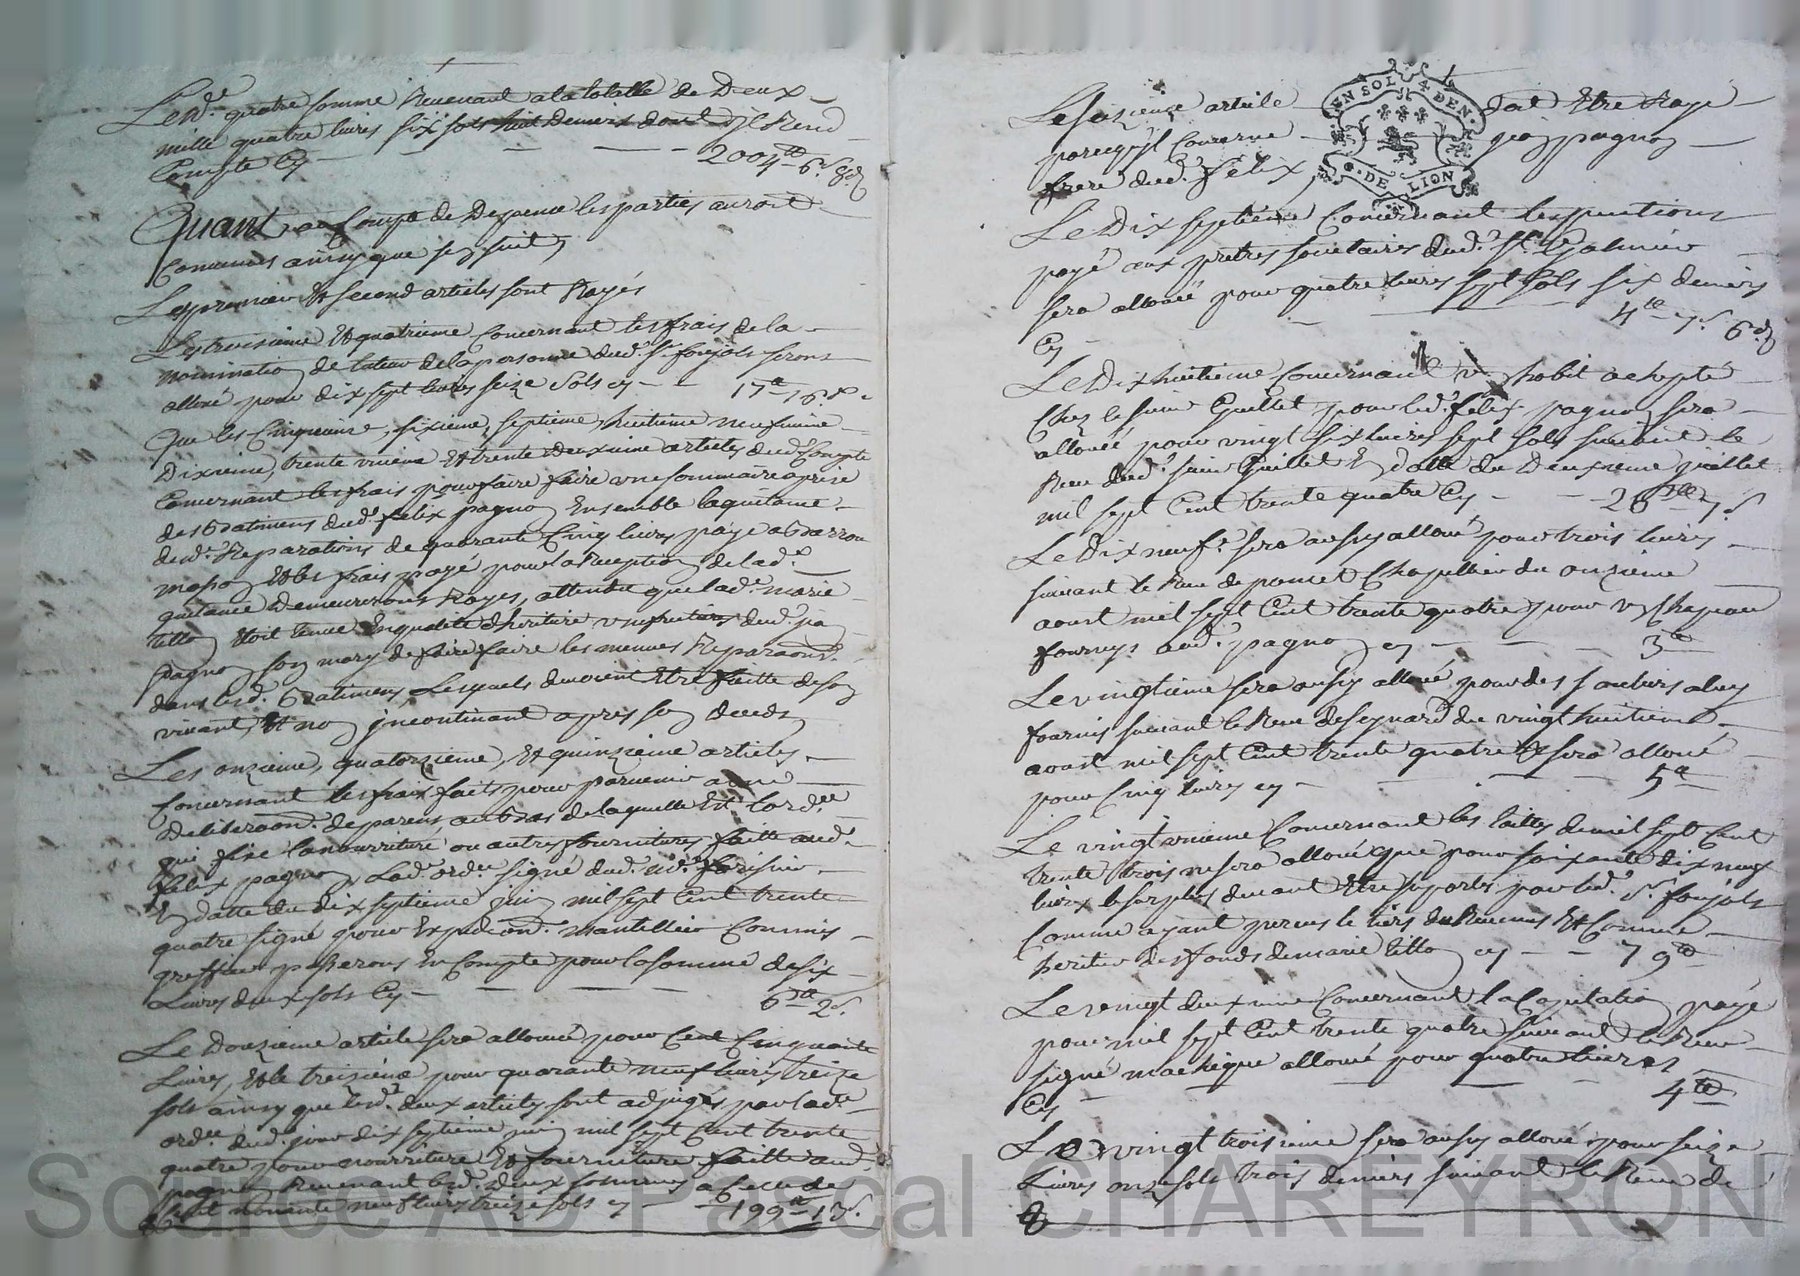 Lesd.es quatre somme Revenant a la totalle de Deux
mille quatre livres six sols huit Deniers dont Il Rend
Compte Cy 2004tt 6s 8d
Quant au Compte de Depence les parties auront
Convenues ainsy que sen suit
Les premier Et second articles sont Rayés
Les troisieme Et quatrieme Concernant les frais de la
nomination de tuteur de la personne dud. sr. foujols seront
alloué pour dix sept livres seize sols cy 17tt 16s
Que les Cinquieme, sixieme, septieme, huitieme neufvieme
Dixieme, trente unieme Et trente deuxieme articles dud. Compte
Concernant les frais pour faire faire une sommaire aprise
des batimens dud. felix pagnon Ensemble la quitance
desd. Reparations de quarante Cinq livres payé a
masson Et les frais payé pour la Reception de lad.
quitance Demeureront Rayes, attendu que lad. marie
tillon Etoit tenue En qualité dheritiere usufruitiere dud.
pagnon son mary de faire faire les menues Reparaons
dans lesd. batimens, Lesquels devoient Etre faitte de son
vivant, Et non incontinant apres son deceds
Les onzieme, quatorzieme, Et quinzieme articles
Concernant les frais faits pour parvenir a une
deliberaon. de parens au bas de laquelle Est lordce
qui fixe la nourriture ou autres fournitures faitte aud.
felix pagnon, Lad. ordce signé dud.
En datte du dix septieme juin mil sept Cent trente
quatre signé pour Expedion. mantellier Commis
greffier passerons En Compte pour la somme de six
Livres deux sols Cy 6tt 2s
Le Douzieme article sera alloué pour Cent Cinquante
Livres, Et le treizieme pour quarante neuf livres treize
sols ainsy que lesd. deux articles sont adjugés par lade
ordce dud. jour dix septieme juin mil sept Cent trente
quatre pour nourriture Et fourniture faitte aud.
pagnon Revenant lesd. deux sommes a Celle de
Cent nonante neuf livres treize sols cy 199tt 13s
Le seizieme article doit Etre Rayé
parcequil Concerne pagnon
frere dud. felix
EN SOL 4 DEN.
G. DE LION
Le Dix septieme Concernant les pentions
payé aux pretres societaires dud. St. Galmier
sera alloué pour quatre livres sept sols six deniers
Cy 4tt 7s 6d
Le Dix huitieme Concernant un habit achepté
Chez le sieur Guillet pour led. felix pagnon sera
alloué pour vingt six livres sept sols suivant le
Receu dud. sieur Guillet En datte du Deuxieme juillet
mil sept Cent trente quatre Cy 26tt 7s
Le Dix neuf.e sera aussy alloué pour trois livres
suivant le Receu de poncet Chapellier du onzieme
aoust mil sept Cent trente quatre pour un Chapeau
fournys aud. pagnon cy 3tt
Le vingtieme sera aussy alloué pour des souliers a luy
fournis suivant le Receu de seynard du vingt huitieme
aoust mil sept Cent trente quatre Et sera alloué
pour Cinq livres cy 5tt
Le vingt unieme Concernant les tailles de mil sept Cent
trente trois ne sera alloué que pour soixante dix neuf
livres le surplus devant Etre suporté par led. sr. foujols
Comme ayant perceu le tiers du Revenus Et Comme
heritier des fonds de marie tillon cy 79tt
Le vingt deuxieme Concernant la Capitation payé
pour mil sept Cent trente quatre suivant le Receu
signé alloué pour quatre livres
Cy 4tt
Le vingt troisieme sera aussy alloué pour seize
Livres onze sols trois deniers suivant le Receu de
8
Source AD Pascal CHAREYRON